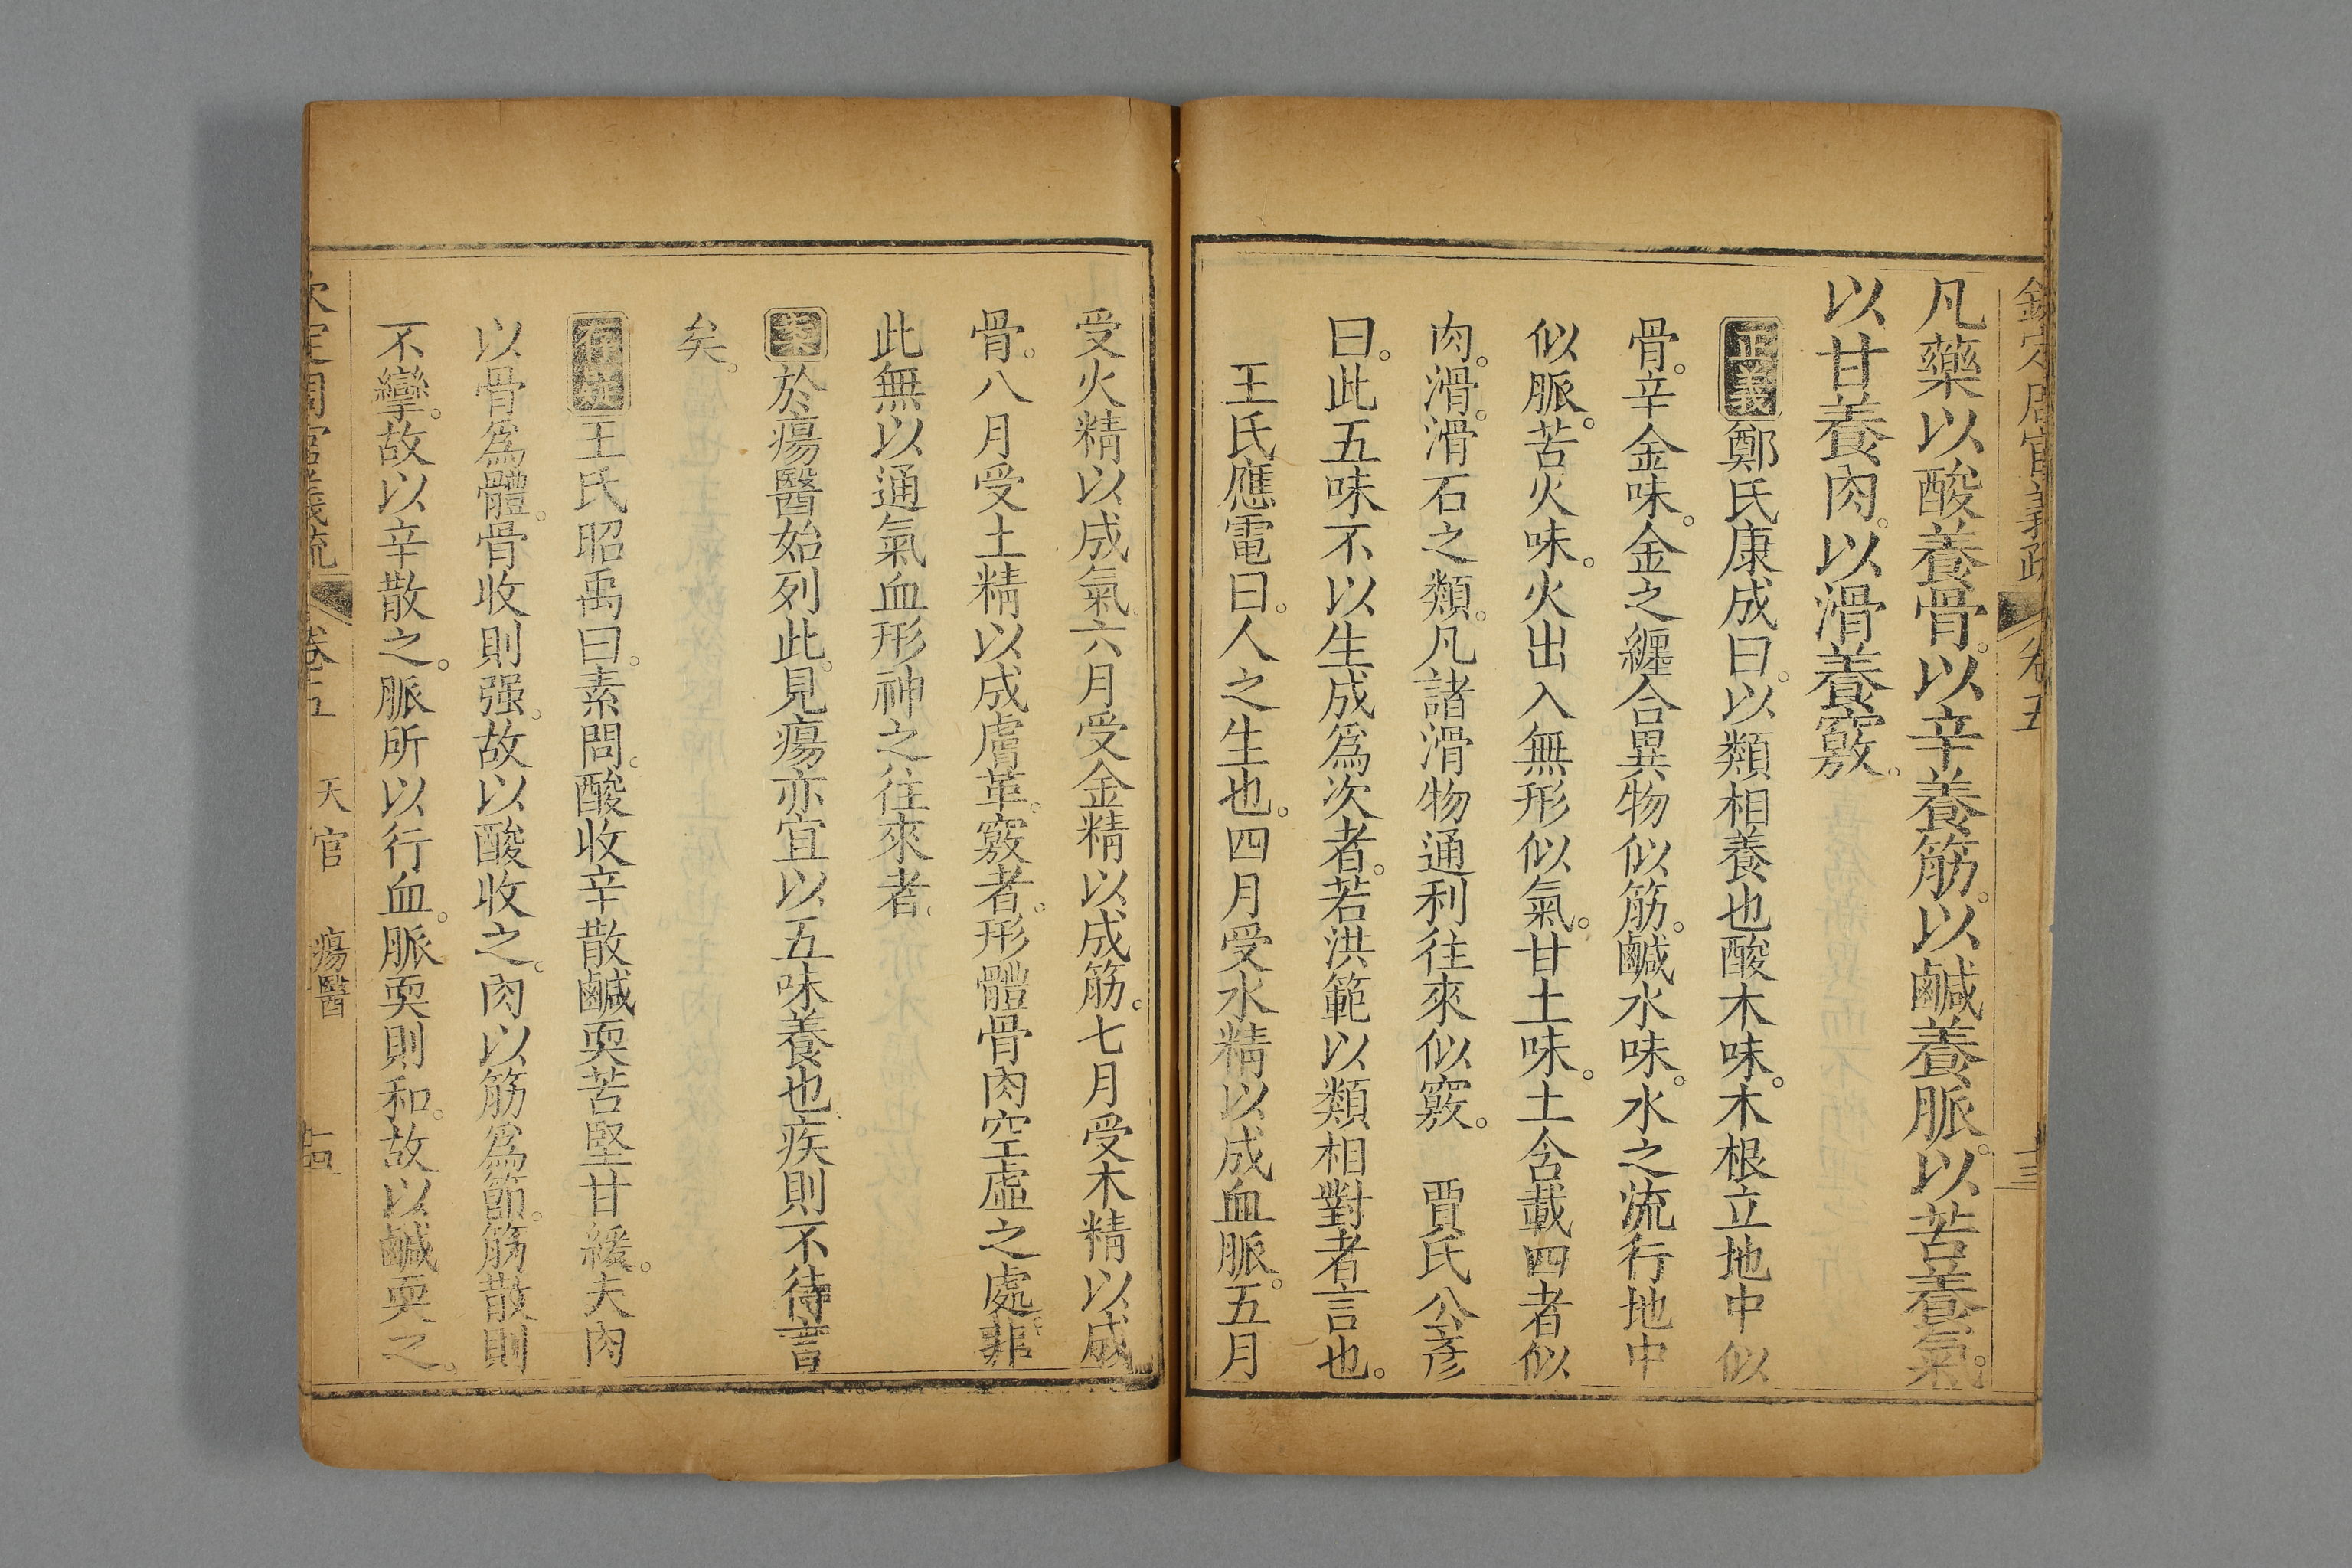 欽定周官義疏 卷五 十三
凡藥以酸養骨。以辛養筋。以鹹養脈。以苦養氣。
以甘養肉。以滑養竅。
正義鄭氏康成曰。以類相養也酸木味。木根立地中似
骨。辛金味。金之纏合異物似筋。鹹水味。水之流行地中
似脈。苦火味。火出入無形似氣。甘土味。土含載四者似
肉。滑。滑石之類。凡諸滑物通利往來似竅。 賈氏公彥
曰。此五味不以生成爲次者。若洪範以類相對者言也。
王氏應電曰。人之生也。四月受水精以成血脈。五月
受火精以成氣。六月受金精以成筋。七月受木精以成
骨。八月受土精以成膚革。竅者。形體骨肉空虛之處。非
此無以通氣血形神之往來者。
案於瘍醫始列此。見瘍亦宜以五味養也。疾則不待言
矣。
王氏昭禹曰。素問。酸收辛散鹹耎苦堅甘緩。夫肉
以骨爲體。骨收則强。故以酸收之。肉以筋爲節。筋散則
不攣。故以辛散之。脈所以行血。脈耎則和。故以鹹耎之。
欽定周官義疏 卷五 天官 瘍醫 十四